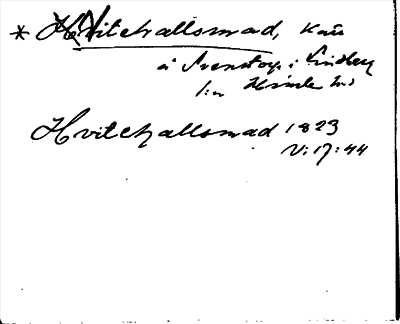 * Hvitehallsmad, Kau
å Svenstorp i Lindberg
sn Himle hd
Hvitehallsmad 1823
V: 17: 44